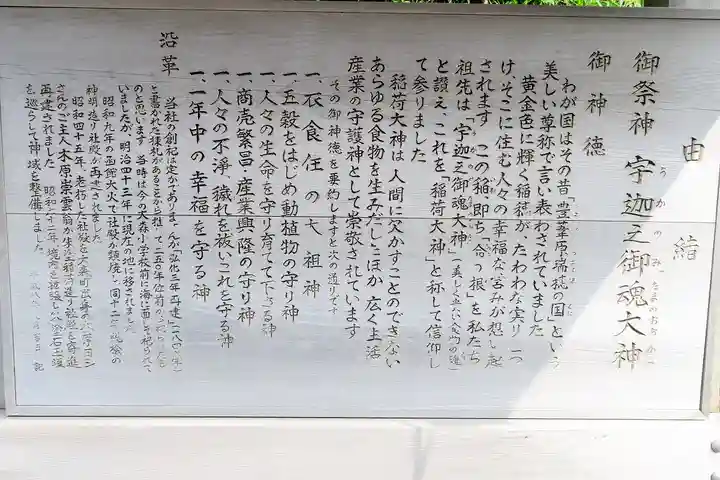 由緒
御祭神 宇迦之御魂大神
うかのみたまのおおかみ
御神徳
わが国はその昔「豊葦原瑞穂の国」という
美しい尊称で言い表わされていました
黄金色に輝く稲穂が、たわわな実りをつ
け、そこに住む人々の幸福な営みが想い起
されます。この稲即ち「命の根」を私たち
祖先は「宇迦之御魂大神」
と讃え、これを「稲荷大神」と称して信仰し
て参りました。
稲荷大神は人間に欠かすことのできない
あらゆる食物を生みだし、ほか広く生活
産業の守護神として崇敬されています
その御神徳を要約しますと次の通りです
一、衣食住の大祖神
一、五穀をはじめ動植物の守り神
一、人々の生命を守り育てて下さる神
一、商売繁昌・産業興隆の守り神
一、人々の不浄、穢れを祓いこれを守る神
一、一年中の幸福を守る神
沿革
当社の創祀は定かでありませんが「弘化三年再建(一八四六年)
と書かれた棟札があることから推して二五〇年位前から祀られたも
のと思います。当時は今の大森小学校前に海に面して祀られて
いましたが、明治四十三年に現在の地に移されました。
昭和九年の函館大火で社殿が類焼し、同十二年
神明造り社殿が再建されました。
昭和四十五年、老朽した社殿を
さんのご主人木原崇雲翁が
再建されました。昭和六十二年、境内を
を巡らして神域を整備しました。